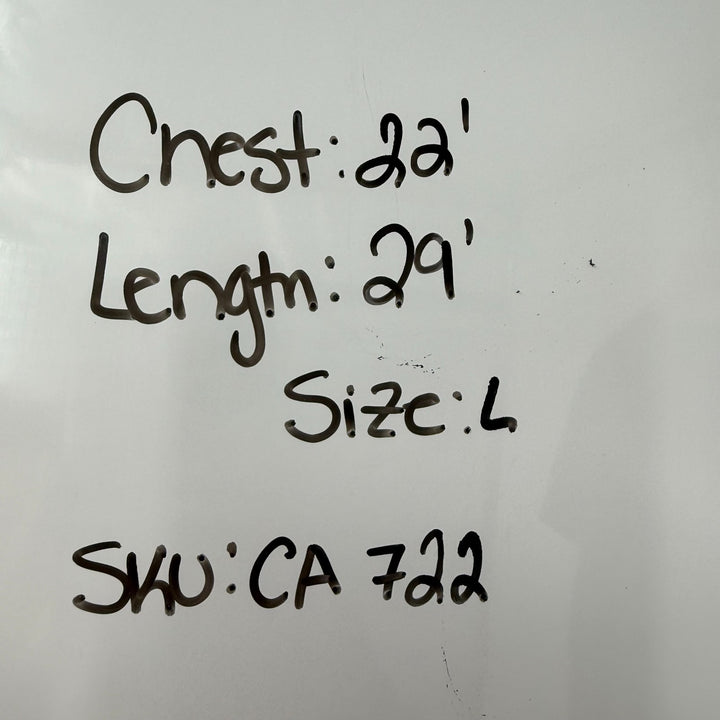 Chest: 22'
Length: 29'
Size: L
SKU: CA 722